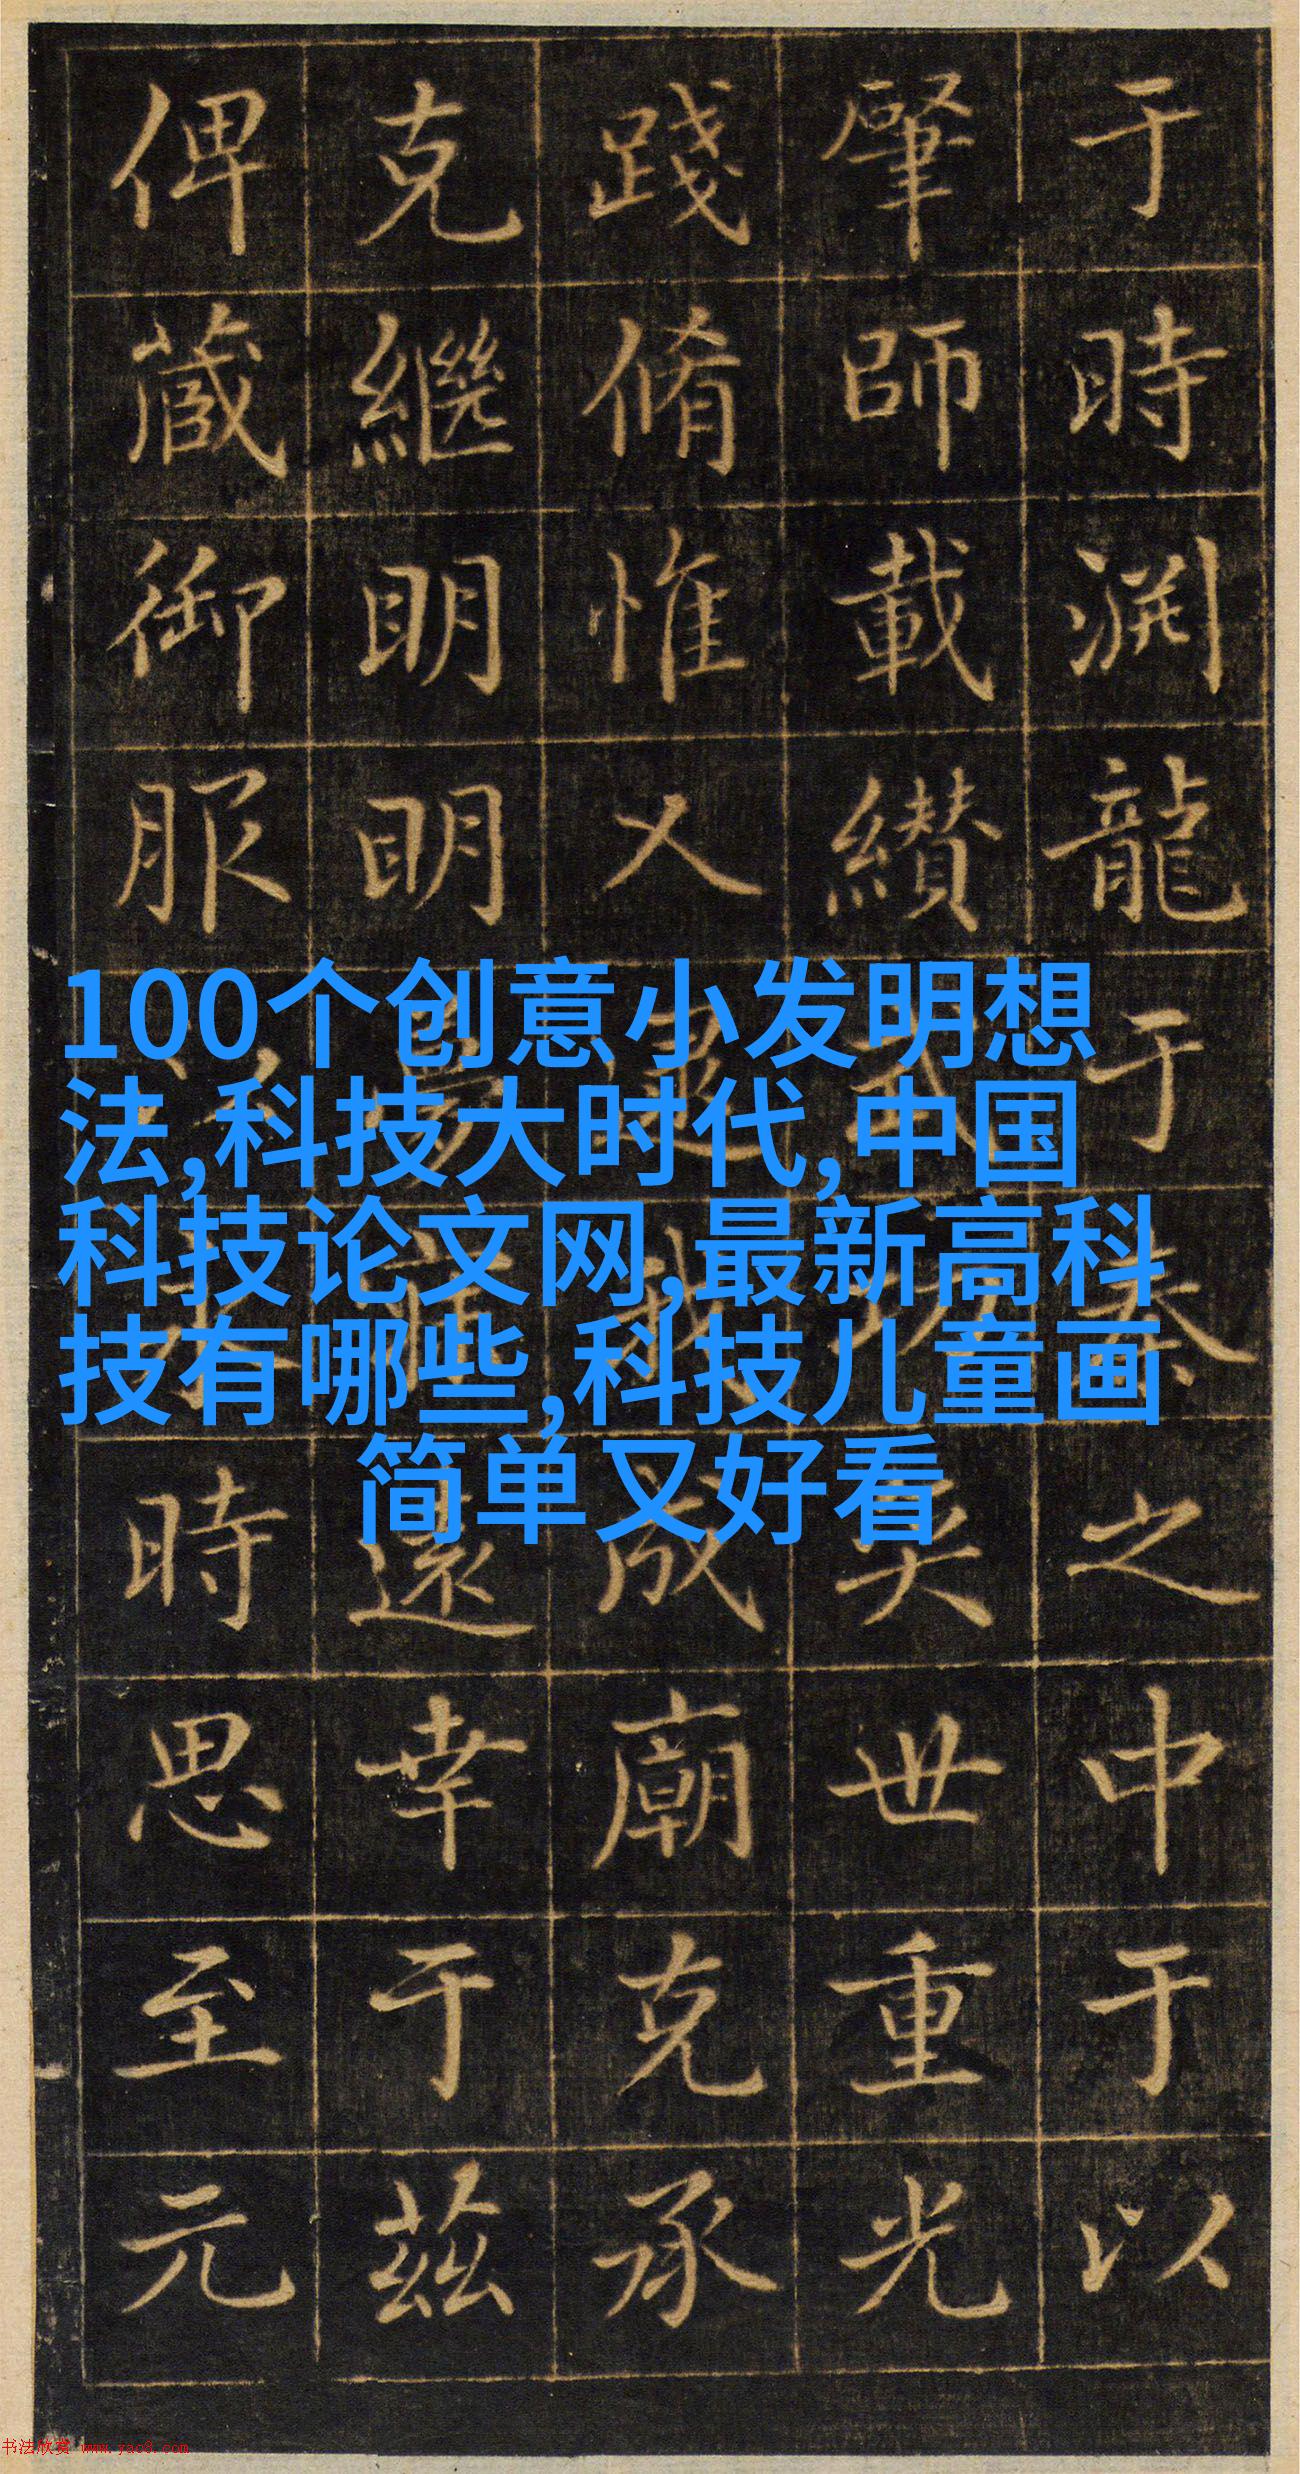 于時渊龍于秦之中于以
肇師載纘武功奕世重光
踐脩惟人成廟克承
克繼明明遠幸于茲
俾蕆御服時思至元
100个创意小发明想
法,科技大时代,中国
科技论文网,最新高科
技有哪些,科技儿童画
简单又好看
书法欣赏 www.yac8.com